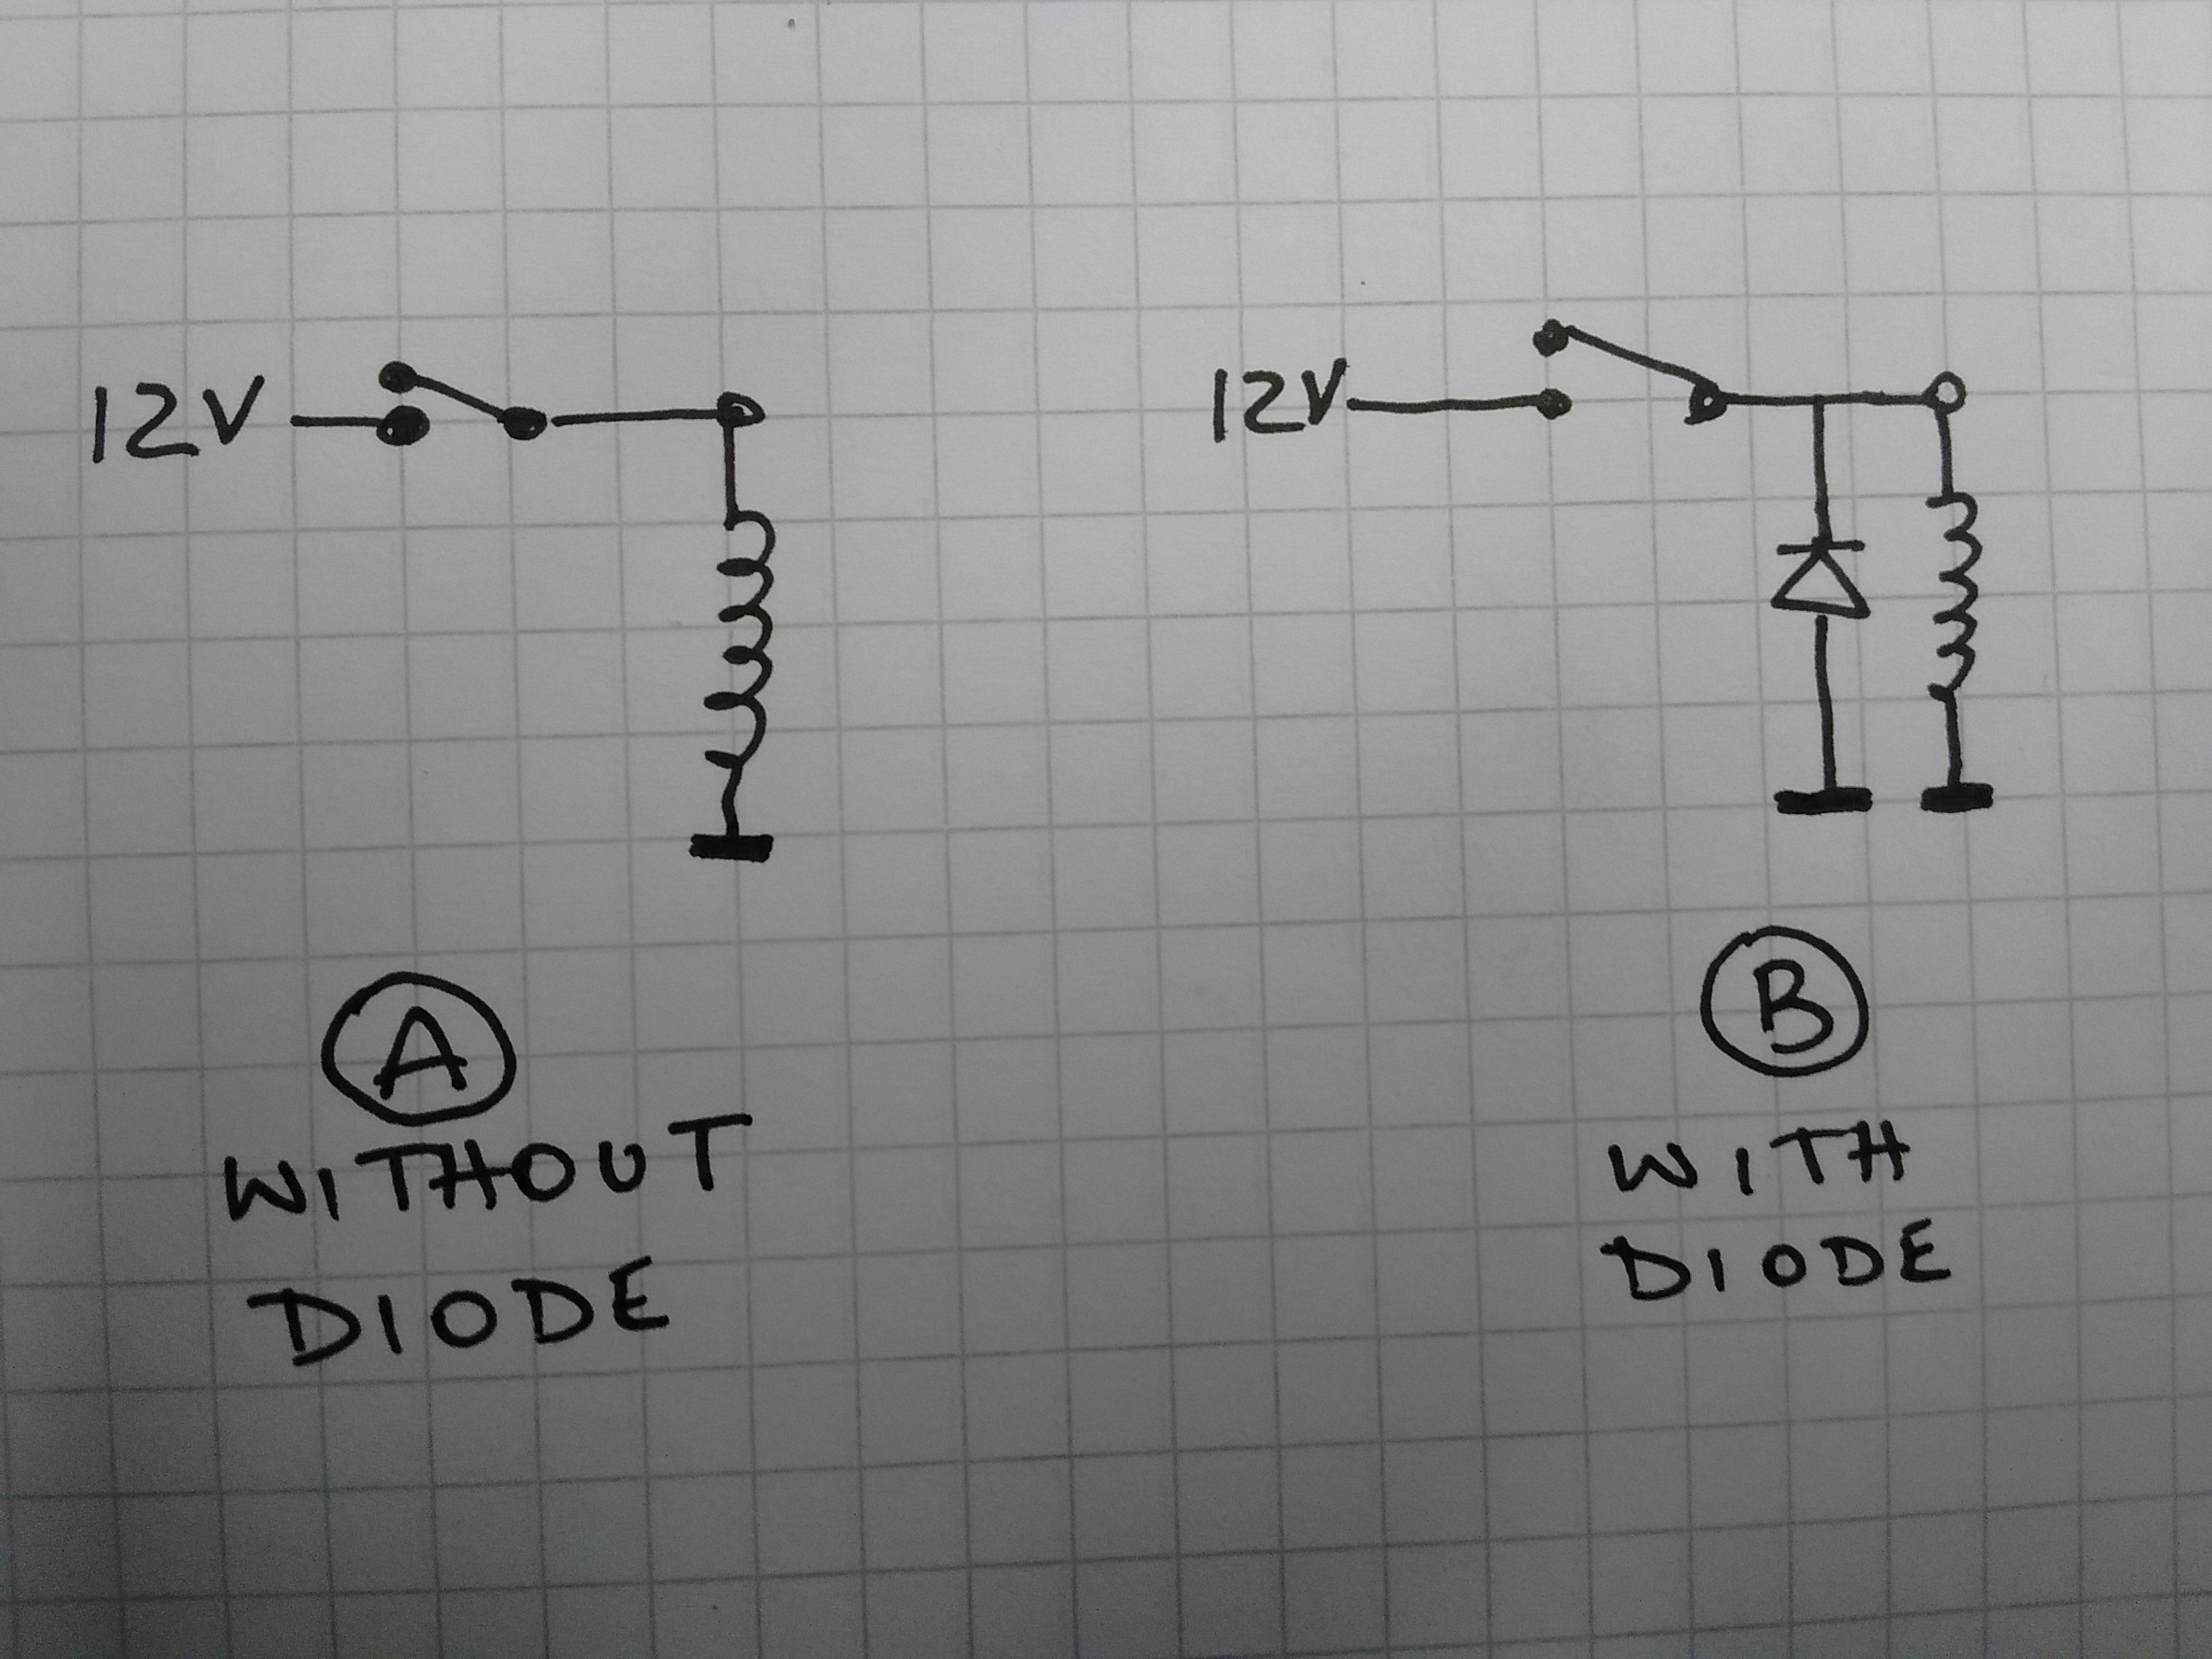 12V
12V
A
WITHOUT
DIODE
B
WITH
DIODE